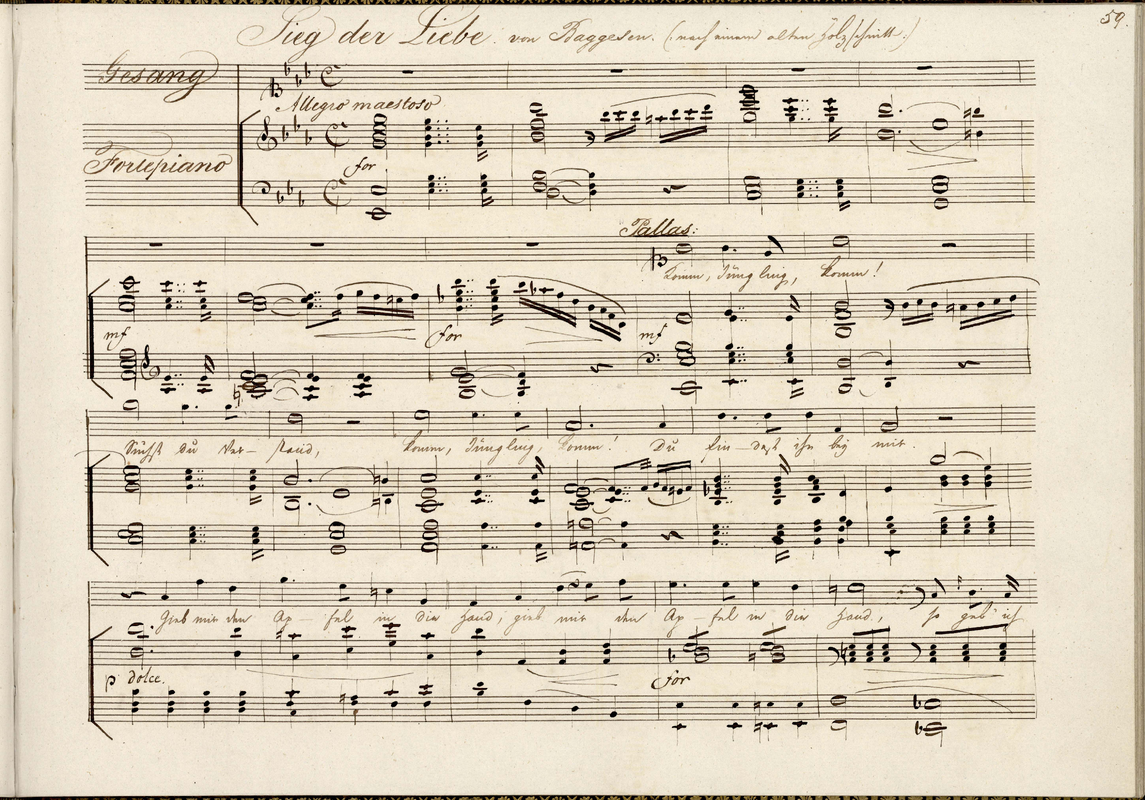 59.
Sieg der Liebe. von Baggesen. (nach einem alten Holzschnitt.)
Gesang
Allegro maestoso
Fortepiano
for
Pallas:
Komm, Jüngling, komm!
mf for mf
Suchst du Ver- stand, komm, Jüngling, komm! Du fin- dest ihn bey mir
Gieb mir den Ap- fel in die Hand, gieb mir den Ap- fel in die Hand, so geb' ich
p dolce. for